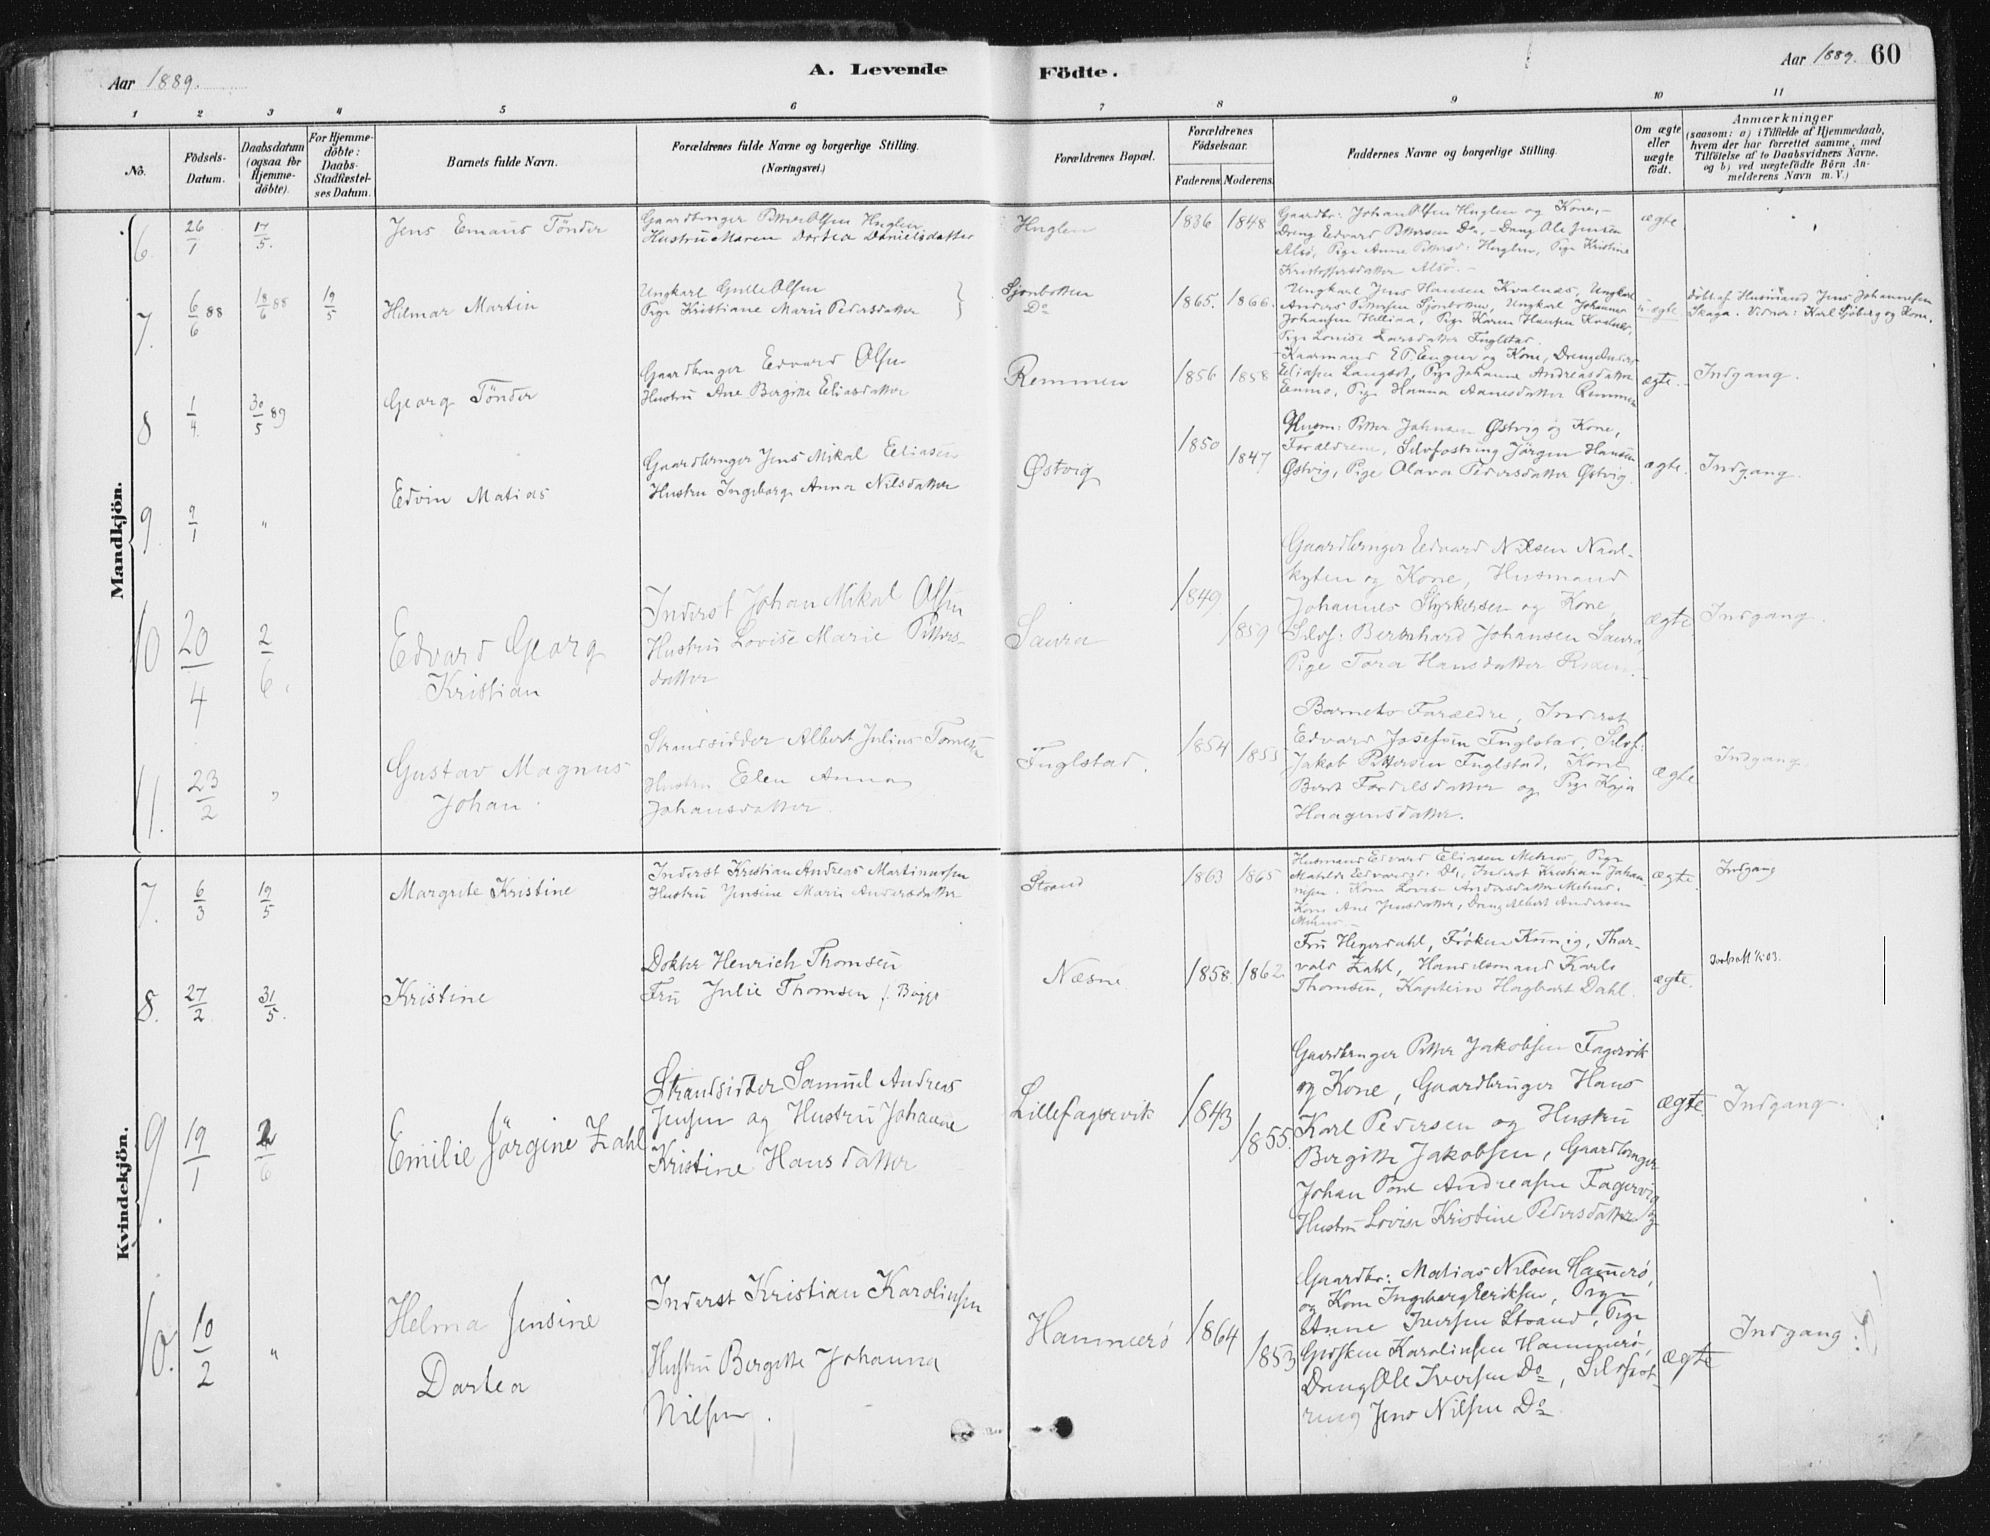 Aar 1889.
A. Levende
Födte.
Aar 1889. 60
1 2 3 4 5 6 7 8 9 10 11
No.
Födsels-
Datum.
Daabsdatum
(ogsaa for
Hjemme-
döbte).
For Hjemme-
döbte:
Daabs-
Stadfæstel-
ses Datum.
Barnets fulde Navn.
Forældrenes fulde Navne og borgerlige Stilling.
(Næringsvei.)
Forældrenes Bopæl.
Forældrenes
Födselsaar.
Faderens. Moderens.
Faddernes Navne og borgerlige Stilling.
Om ægte
eller
uægte
födt.
Anmærkninger
(saasom: a) i Tilfælde af Hjemmedaab,
hvem der har forrettet samme, med
Tilföielse af to Daabsvidners Navne,
og b) ved uægtefödte Börn An-
melderens Navn m. V.)
Mandkjön.
6. 26/1 17/5.
Jens Emans Tönder
Gaardbruger Petter Olsen Huglen
Hustru Maren Dortea Danielsdatter
Huglen
1836 1848
Gaardbr: Johan Olsen Huglen og Kone,
Dreng Edvard Pettersen Do, Dreng Ole Jensen
Alsö, Pige Anne Pettersd: Huglen, Pige Kristine
Kristoffersdatter Alsö.
ægte.
7. 6/6 88 18/6 88 19/5
Hilmar Martin
Ungkarl Gulle Olsen
Pige Kristiane Marie Pedersdatter
Sjonbotten
Do
1865. 1866.
Ungkarl Jens Hansen Kvalnæs, Ungkarl
Anders Pettersen Sjonbotten, Ungkarl Johannes
Johansen Helliaa, Pige Karen Hansen Kvalnæs,
Pige Louise Larsdatter Fuglstad.
u-ægte.
döbt af Husmand Jens Johannesen
Skaga. Vidner: Karl Sjöberg og Kone.
8 1/4 30/5 89
Georg Tönder
Gaardbruger Edvard Olsen
Hustru Ane Bergitte Eliasdatter
Remmen
1856 1858
Kaarmand E. P. Enger og Kone, Dreng Anders
Eliasen Langset, Pige Johanne Andreasdatter
Enmo, Pige Hanna Annesdatter Remmen
ægte.
Indgang.
9 9/1 "
Edvin Matias
Gaardbruger Jens Mikal Eliasen
Hustru Ingeborg Anna Nilsdatter
Østvig
1850 1847
Husm: Petter Johnsen Østvig og Kone,
Forældrene, Selvfostring Jörgen Hansen
Østvig, Pige Olava Pedersdatter Østvig.
ægte.
Indgang.
10 20/4 2/6.
Edvard Georg
Kristian
Inderst Johan Mikal Olsen
Hustru Lovise Marie Petters-
datter
Saura
1849. 1859
Gaardbruger Edvard Nilsen Naal-
kyten og Kone, Husmand
Johannes Styrkersen og Kone,
Selvf: Bernhard Johansen Saura,
Pige Tora Hansdatter
ægte
Indgang.
11. 23/2 "
Gustav Magnus
Johan.
Strandsidder Albert Julius Tomesen
Hustru Elen Anna
Johansdatter.
Fuglstad.
1854 1855
Barnets Forældre, Inderst
Edvard Josefsen Fuglstad, Selvf:
Jakob Pettersen Fuglstad, Kone
Berit Fordelsdatter og Pige Kaja
Haagensdatter.
ægte
Indgang.
Kvindekjön.
7. 6/3 19/5
Margrete Kristine
Inderst Kristian Andreas Martinussen
Hustru Jensine Marie Andersdatter
Strand
1863 1865
Husmand Edvard Eliasen Mehus, Pige
Matilde Edvardsd. Do, Inderst Kristian Johan-
nesen. Kone Lovise Andersdatter Mehus.
Kone Ane Jensdatter, Dreng Albert Andersen
Mehus
ægte.
Indgang
8. 27/2 31/5.
Kristine
Doktor Henrich Thomsen
Fru Julie Thomsen f. Bugge
Næsne
1858. 1862.
Fru Hegerdahl, Fröken Kunig, Thor-
vald Zahl, Handelsmand Karl
Thomsen, Kaptein Hagbart Dahl.
ægte.
9. 19/1 2/6
Emilie Jörgine Zahl
Strandsidder Samuel Andreas
Jensen og Hustru Johanne
Kristine Hansdatter
Lillefagervik
1843 1855.
Gaardbruger Petter Jakobsen Fagervik
og Kone, Gaardbruger Hans
Karl Pedersen og Hustru
Bergitte Jakobsen, Gaardbruger
Johan Pone Andreasen Fagervig og
Hustru Lovise Kristine Pedersdatter
ægte
Indgang.
10. 10/2 "
Helma Jensine
Dortea
Inderst Kristian Karolinsen
Hustru Bergitte Johanna
Nilsen.
Hammerö
1864 1853
Gaardbr: Matias Nilsen Hammerö,
og Kone Ingeborg Eriksen, Pige
Anne Iversen Strand, Pige
Karolinsen Hammerö,
Dreng Ole Iversen Do, Selvfost-
ring Jens Nilsen Do
ægte
Indgang.